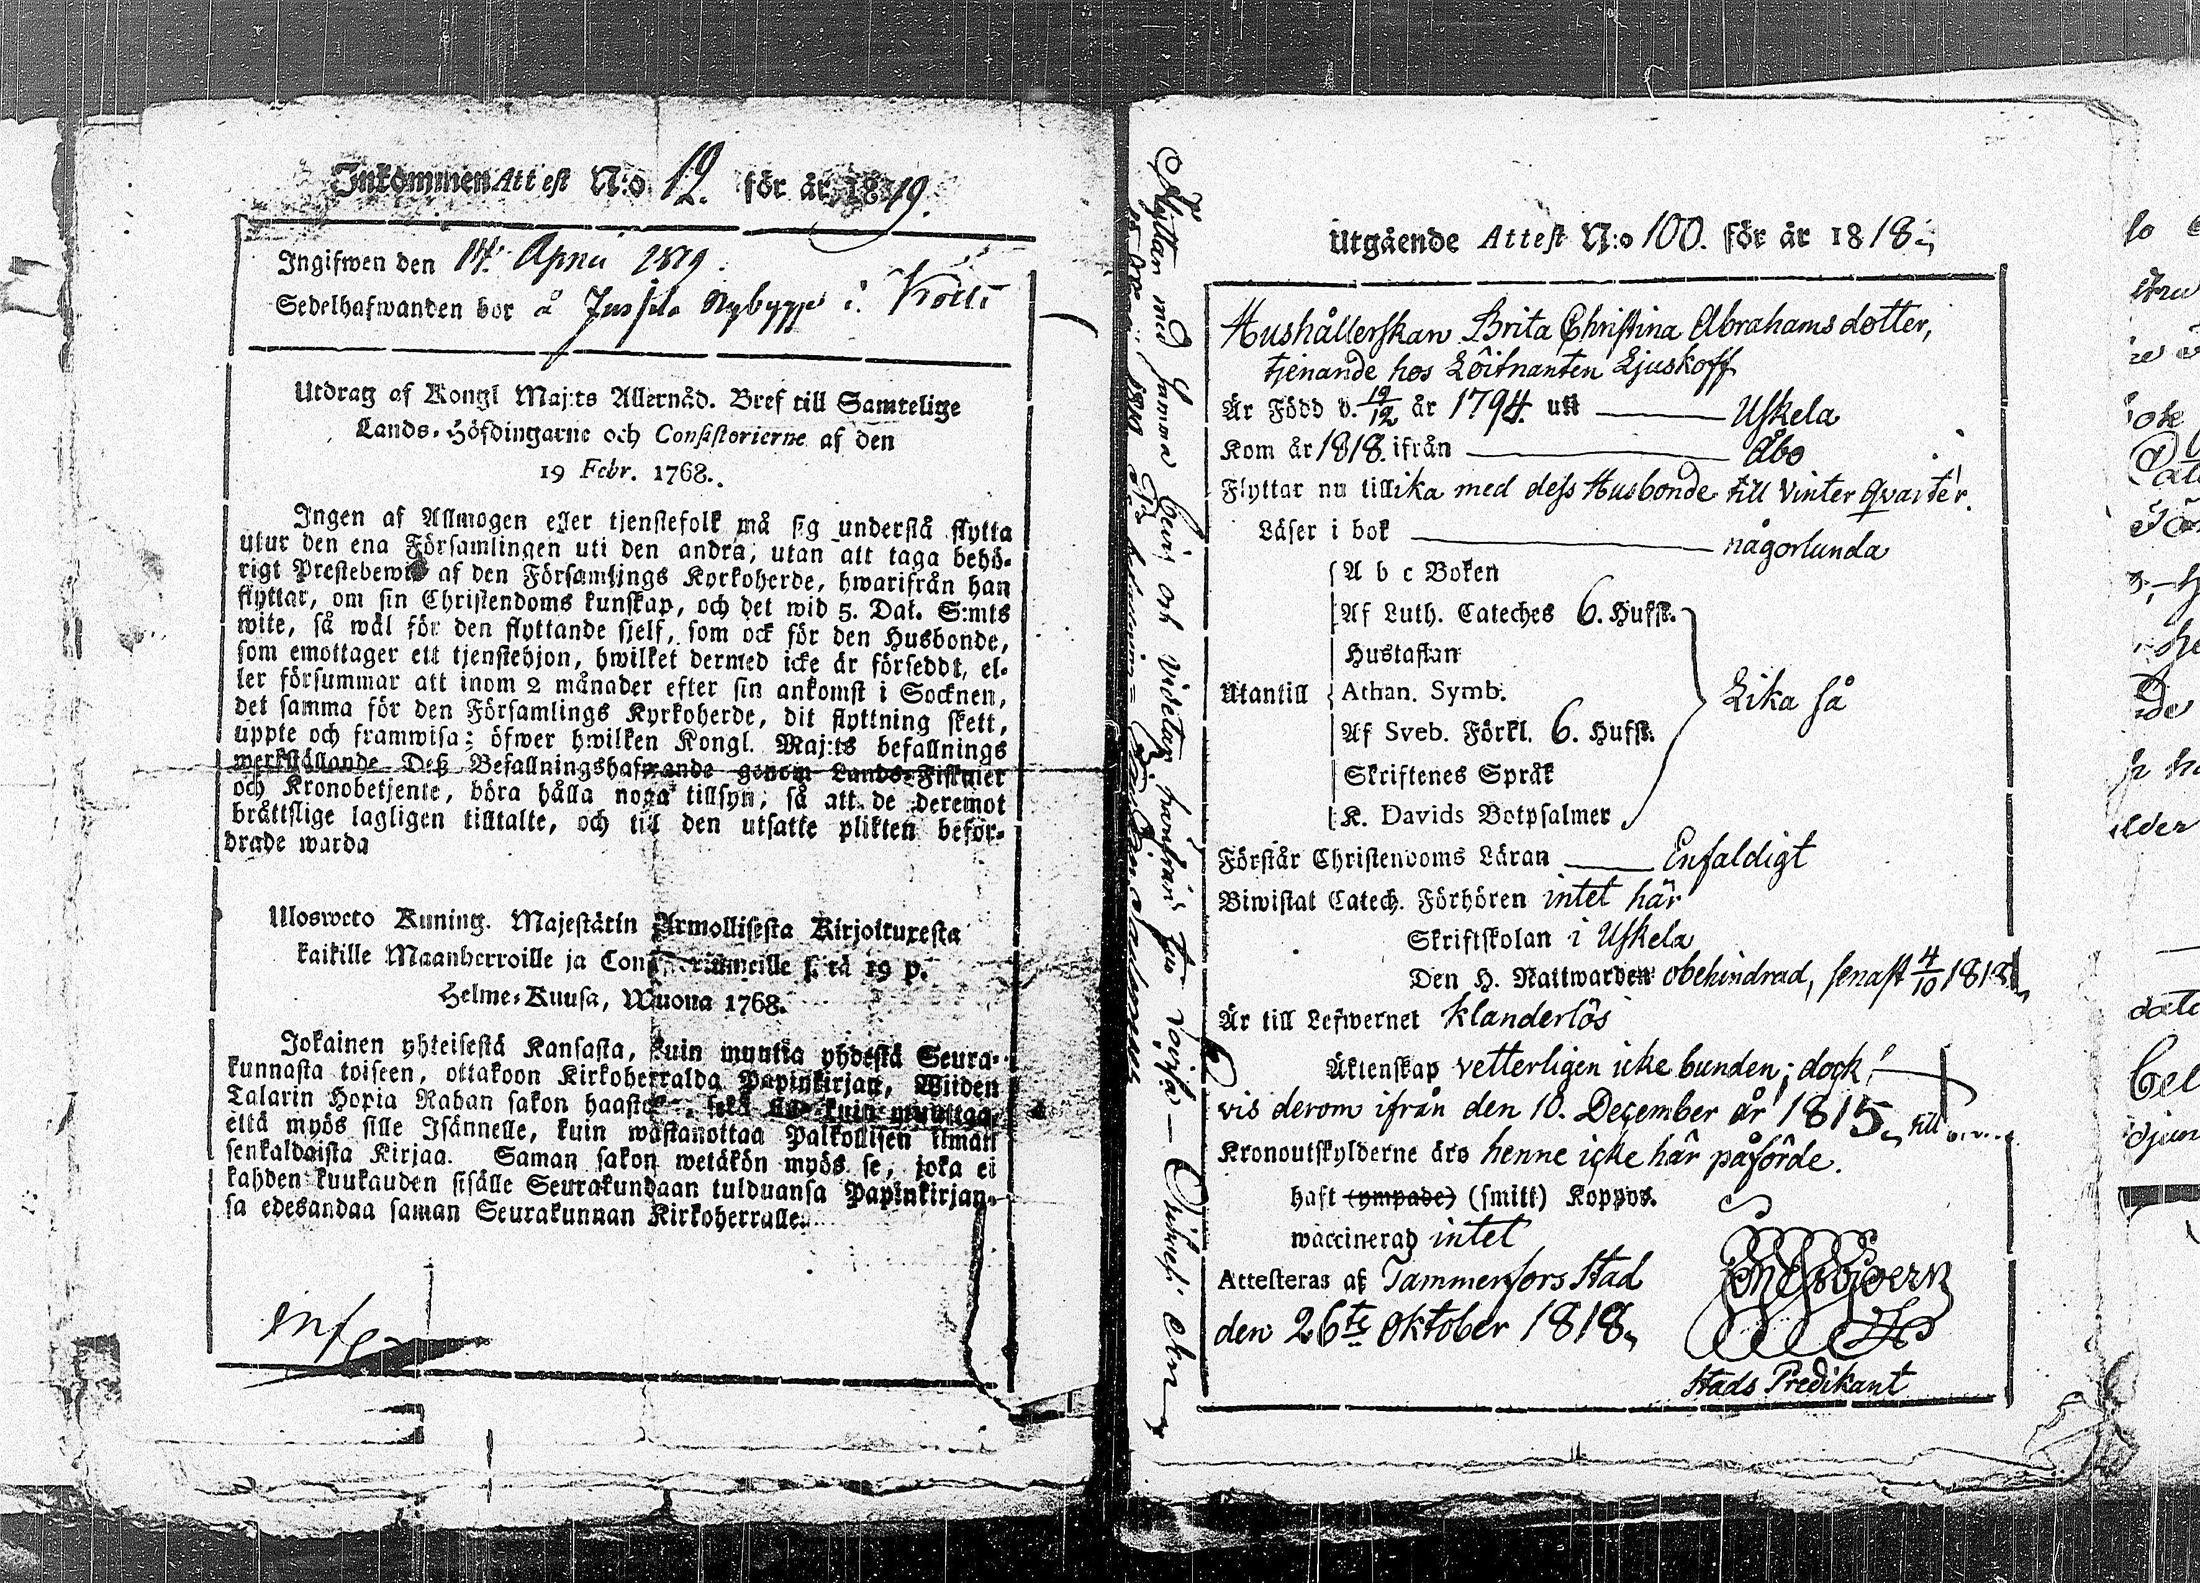 Inkommen Attest N:o 19. för år 1819.
Ingifwen den 14. April 1819.
Sedelhafwanden bor å Jussila Nybygge i
Utdrag af Kongl Maj:ts Allernåd. Bref till Samtelige
Lands-Höfdingarne och Consistorierne af den
19 Febr. 1768.
Ingen af Allmogen eller tjenstefolk må sig understå flytta
utur den ena Församlingen uti den andra, utan att taga behö-
rigt Prestebewis af den Församlings Kyrkoherde, hwarifrån han
flyttar, om sin Christendoms kunskap, och det wid 5. Dal. S:mts
wite, så wäl för den flyttande sjelf, som ock för den Husbonde,
som emottager ett tjenstehjon, hwilket dermed icke är försedt, el-
ler försummar att inom 2 månader efter sin ankomst i Socknen,
det samma för den Församlings Kyrkoherde, dit flyttning skett,
uppte och framwisa; öfwer hwilken Kongl. Maj:ts befallnings
werkställande Deß Befallningshafwande genom Lands-Fiskaler
och Kronobetjente, böra hålla noga tillsyn, så att de deremot
bråttslige lagligen tilltalte, och till den utsatte plikten befor-
drade warda
Ulosweto Kuning. Majestätin Armollisesta Kirjoituxesta
kaikille Maanherroille ja sitä 19 p.
Helme-Kuusa, Wuona 1768.
Jokainen yhteisestä Kansasta, kuin muutta yhdestä Seura-
kunnasta toiseen, ottakoon Kirkoherralda Papinkirjan, Wiiden
Talarin Hopia Rahan sakon haasto, sekä kuin muuttaa,
että myös sille Isännelle, kuin wastanottaa Palkollisen ilman
senkaldaista Kirjaa. Saman sakon wetäkön myös se, joka ei
kahden kuukauden sisälle Seurakundaan tulduansa Papinkirjan-
sa edesandaa saman Seurakunnan Kirkoherralle.
utgående Attest N:o 100. för år 1818.
Hushållerskan Brita Christina Abrahamsdotter,
tjenande hos Löitnanten Ljuskoff
Är Född d. 19/12 år 1794. uti Uskela
Kom år 1818. ifrån Åbo
Flyttar nu tillika med dess Husbonde till Vinter Qvarter.
Läser i bok någorlunda
A b c Boken
Af Luth. Cateches 6. Hufst.
Hustaflan
Utantill Athan. Symb. Lika så
Af Sveb. Förkl. 6. Hufst.
Skriftenes Språk
K. Davids Botpsalmer
Förstår Christendoms Läran Enfaldigt
Biwistat Catech. Förhören intet här
Skriftskolan i Uskela
Den H. Nattwarden obehindrad, senast 4/10 1818
Är till Lefwernet Klanderlös
Äktenskap vetterligen icke bunden; dock
vis derom ifrån den 10. December år 1815, till
Kronoutskylderne äro henne icke här påförde.
haft (ympade) (smitt) Koppor.
waccinerad intet
Attesteras af Tammerfors Stad
den 26te Oktober 1818.
Stads Predikant